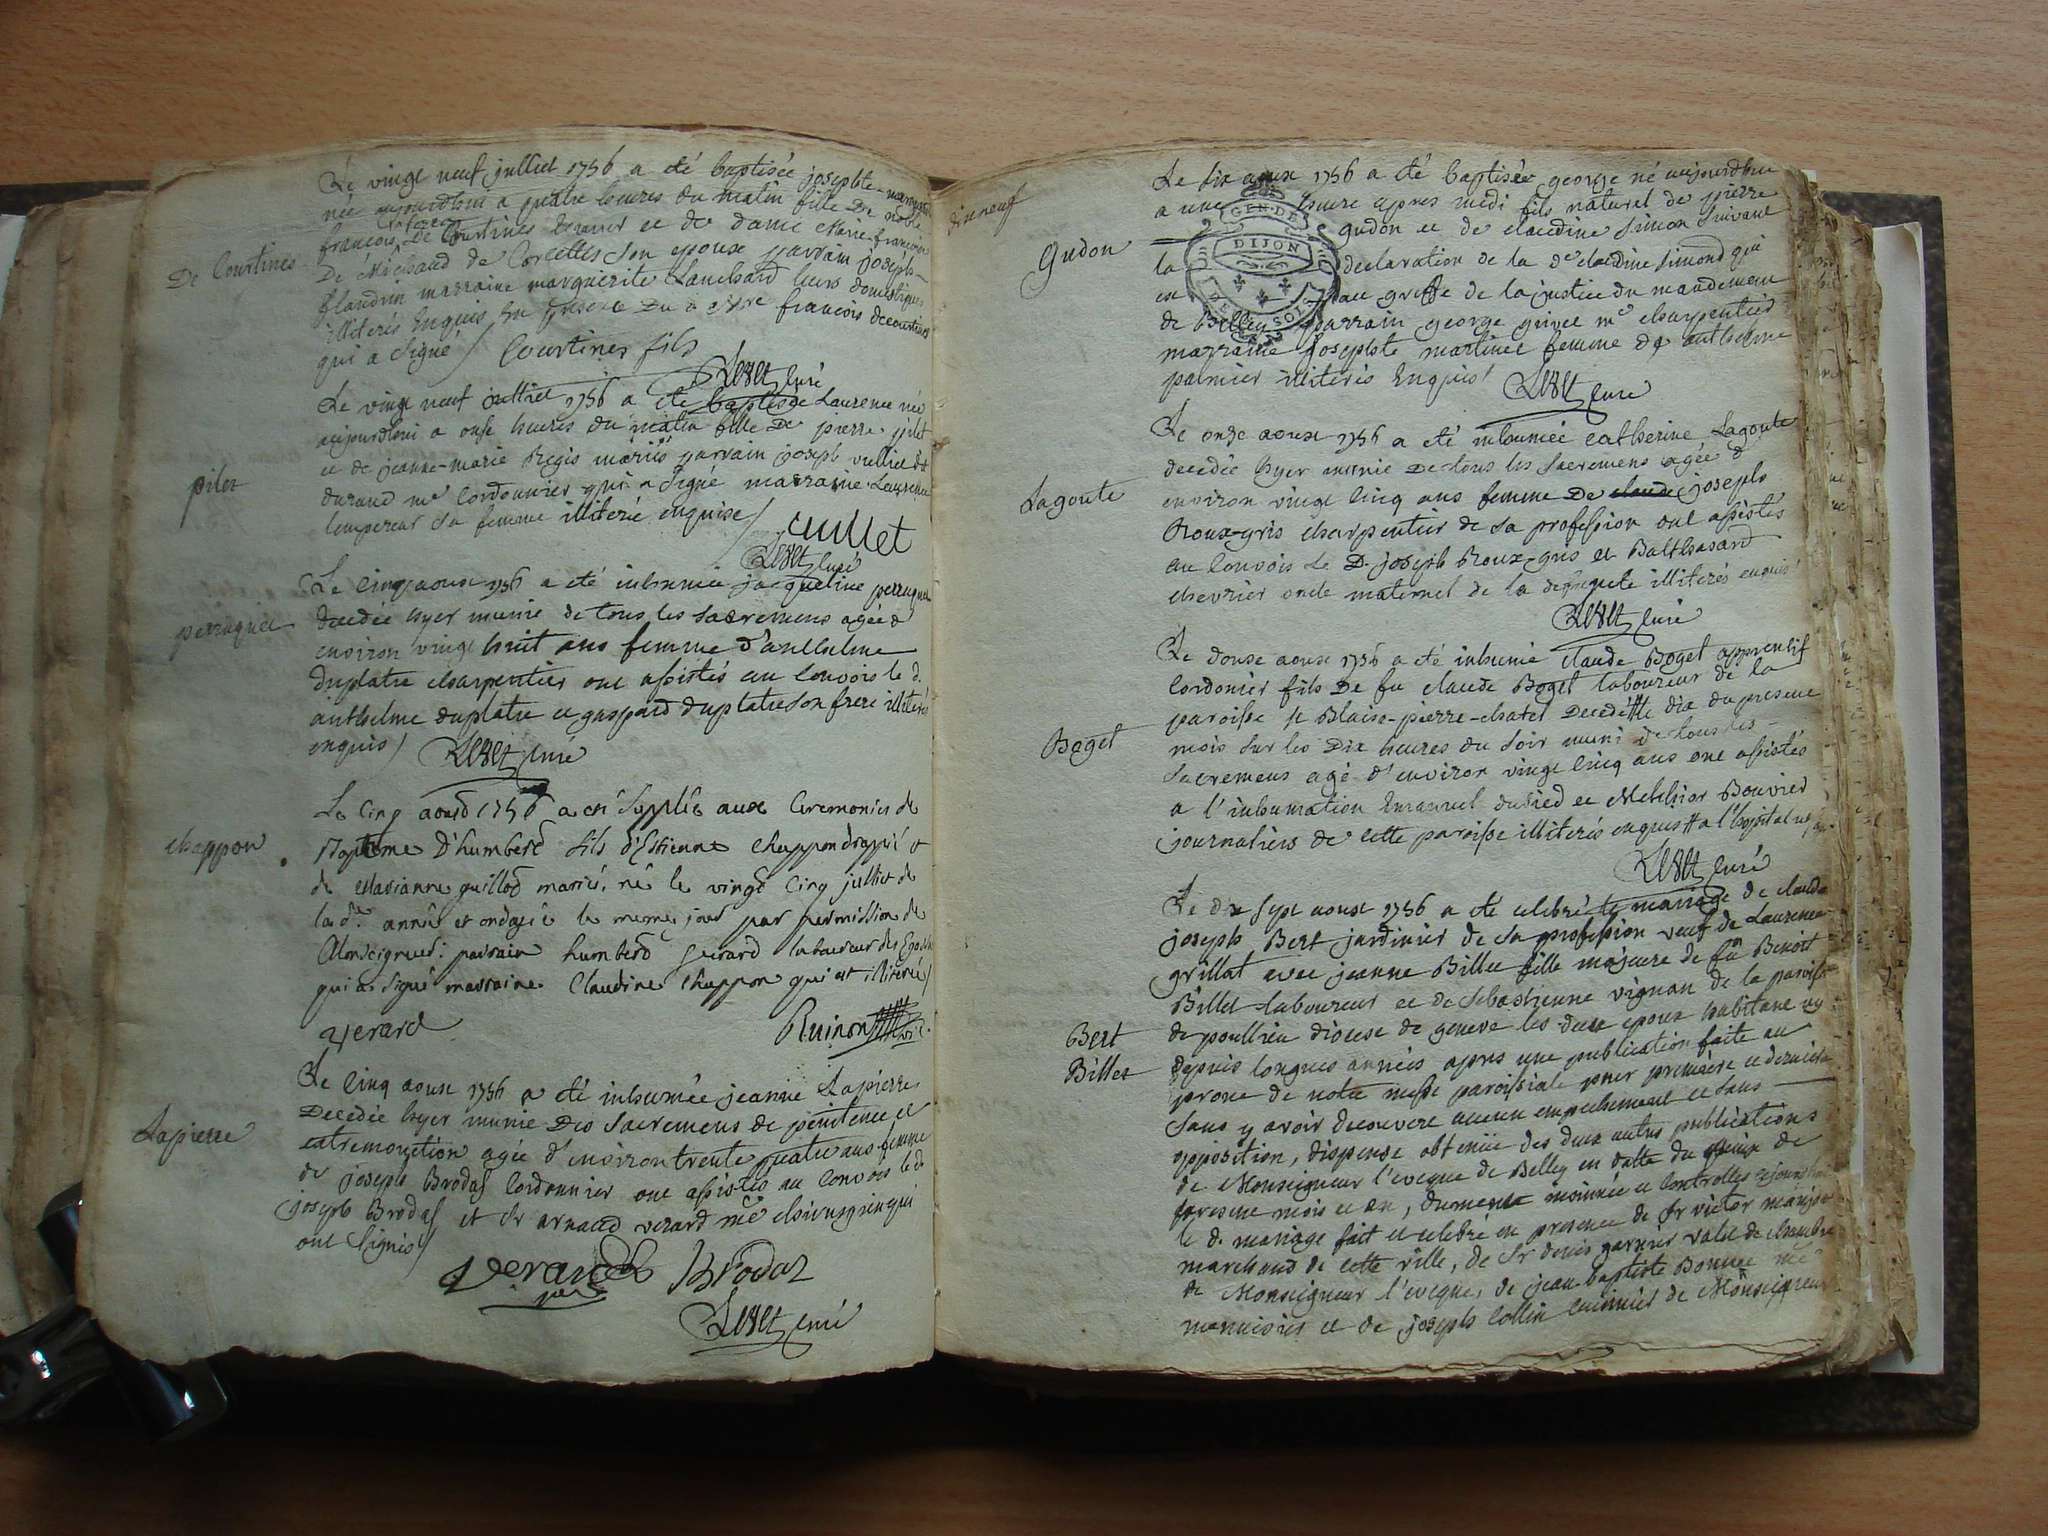 Le vingt neuf julliet 1756 a eté baptisée josephte-marguerite
née aujourdhui a quatre heures du matin fille De noble
françois De Courtines Ecuier et de dame Marie françoise
De Courtines
De Michaud de Corcelles son epouse parrain joseph
flandrin marraine marguerite Lanchard leurs domestiques
illiterés enquis en presence Du françois decourtines
qui a signé / Courtines fils
Levet curé
Le vingt neuf julliet 1756 a eté baptisée Laurence née
aujourdhui a onse heures du matin fille De pierre pilet
et de jeanne-marie Regis mariés parrain joseph vulliet dt
pilet
durand me Cordonnier qui a signé marraine Laurence
Lempereur sa femme illiteré enquise /
vulliet
Levet curé
Le cinq aoust 1756 a eté inhumée jacqueline perruquet
decedée hyer munie de tous les sacremens agée d
perruquet
environ vingt huit ans femme d'anthelme
duplatre charpentier ont assistés au convois le d.
anthelme duplatre et gaspard duplatre son frere illiterés
enquis / Levet curé
Le Cinq aoust 1756 a eté supplée aux Ceremonies de
chappon
Baptême D'humbert fils d'Estienne Chappon drappié et
de Marianne guillod mariés, né le vingt Cinq julliet de
la de. année et ondoyé le meme jour par permission de
Monseigneur: parrain humbert gerard laboureur des
qui a signé marraine Claudine Chappon qui est illiterée /
gerard Ruinon
Le cinq aoust 1756 a eté inhumée jeanne Lapierre
Lapierre
Decedée hyer munie Des sacremens de penitence et
extremonction agée d'environ trente quatre ans femme
de joseph Brodas Cordonnier ont assistés au convois le d.
joseph Brodas et Sr arnaud verard me chirurgien qui
ont signés /
Verard Brodas
pere
Levet curé
dixneuf
Le six aoust 1756 a eté baptisée george né aujourdhui
a une heure apres midi fils natural de pierre
Gudon
gudon et de claudine Simon suivant
GEN. DE
DIJON
la declaration de la de claudine simond qui
est au greffe de la justice du mandement
de Belley parrain george grivet me charpentier
marraine Josephte martinet femme de anthelme
palmier illiterés enquis /
Levet curé
Le onze aoust 1756 a eté inhumée catherine Lagoute
decedée hyer munie De tous les sacremens agée d
Lagoute
environ vingt cinq ans femme De claude joseph
Roux-gris charpentier de sa profession ont assistés
au convois Le D. joseph Roux-gris et Balthasard
chevrier oncle maternel de la illiterés enquis /
Levet curé
Le douse aoust 1756 a eté inhumé claude Boget apprentif
Cordonier fils De fu claude Boget laboureur de la
paroisse st Blaise-pierre-chatel Decedé # le dix du present
Boget
mois sur les Dix heures du soir muni de tous les
sacremens agé d'environ vingt cinq ans ont assistés
a l'inhumation Emanuel dubied et Melchior Bouvier
journaliers de cette paroisse illiterés enquis # a l'hopital
Levet curé
Le dix sept aoust 1756 a eté celebré le mariage de claude
joseph Bert jardinier de sa profession veuf de Laurence
grillat avec jeanne Billet fille majeure de fû Benoit
Billet laboureur et de sebastienne vignan de la paroisse
Bert
de poullieu diocese de geneve les deux epoux habitant icy
Billet
depuis longues années apres une publication faite au
prone de notre messe paroissiale pour premiere et derniere
sans y avoir decouvert aucun empechement et sans
opposition, dispense obtenüe des deux autres publications
de Monseigneur l'eveque de Belley en datte du de
present mois et an, duement insinuée et controllée aujourdhui
le d. mariage fait et celebré en presence de Sr victor
marchand de cette ville, de Sr denis garnier valet de chambre
de Monseigneur l'eveque, de jean baptiste Bonnet me
menuisier et de joseph Collin cuisinier de Monseigneur